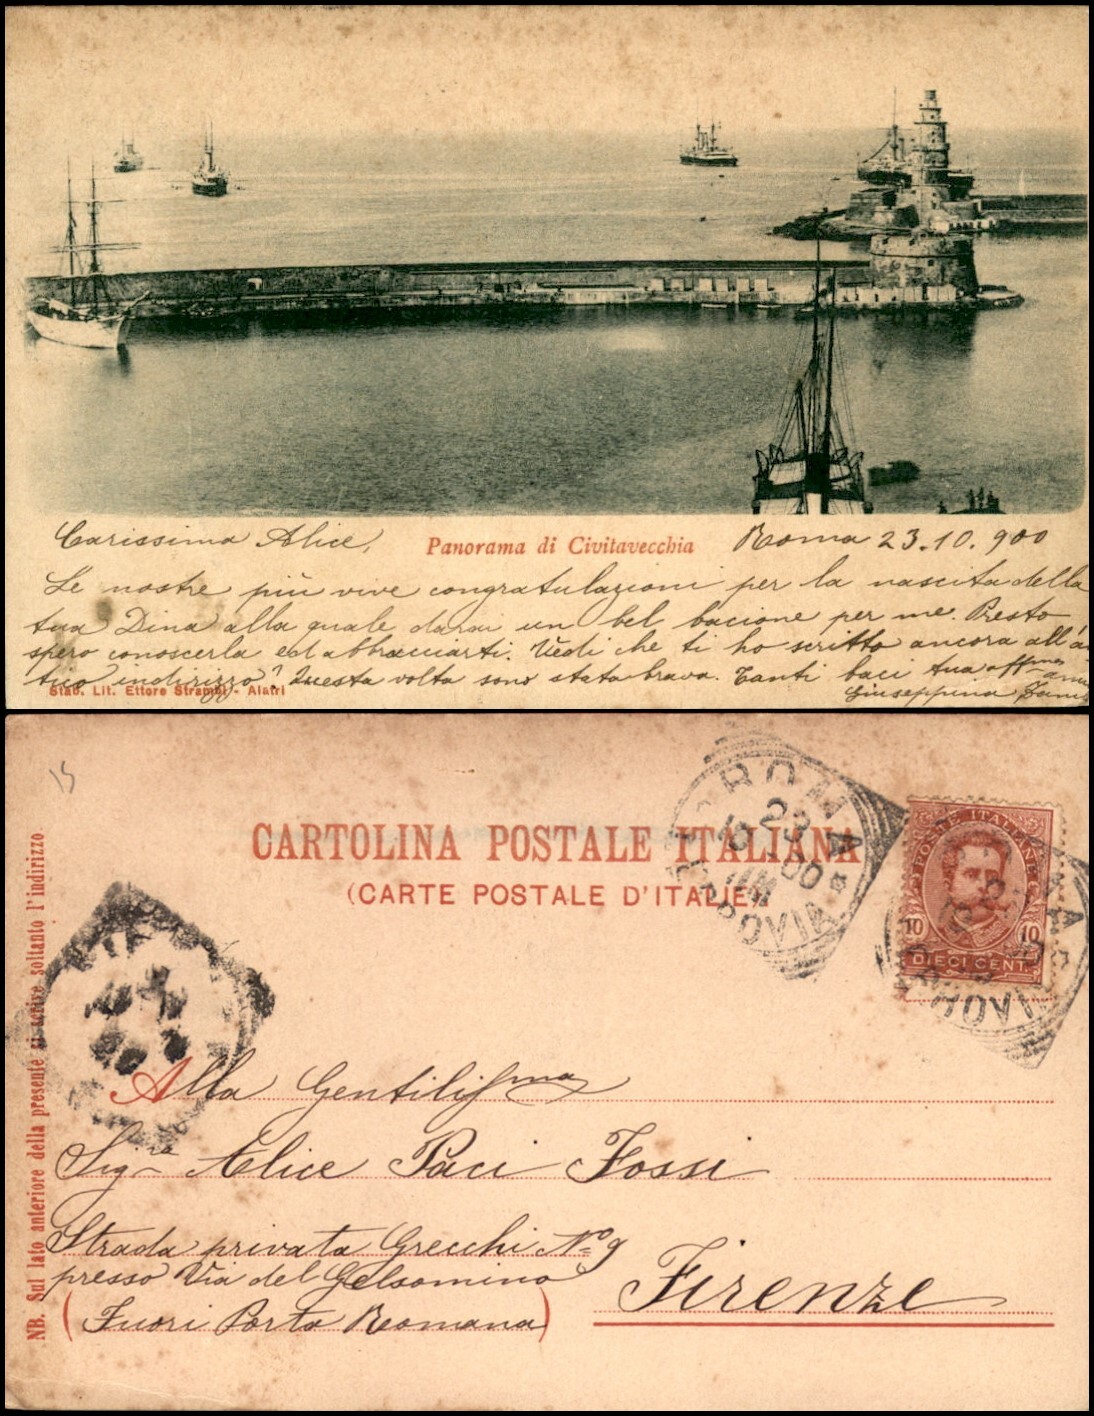 Carissima Alice, Panorama di Civitavecchia Roma 23.10.900
Le nostre più vive congratulazioni per la nascita della
tua Dina alla quale darai un bel bacione per me. Presto
spero conoscerla ed abbracciarti. Vedi che ti ho scritto ancora all'an
tico indirizzo? Questa volta sono stata brava. Tanti baci tua affma
Giuseppina
Stab. Lit. Ettore Strambi - Alatri
15
CARTOLINA POSTALE ITALIANA
(CARTE POSTALE D'ITALIE)
NB. Sul lato anteriore della presente si scrive soltanto l'indirizzo
ROMA
23
10
00
POSTE ITALIANE
10 10
DIECI CENT.
Alla Gentilissma
Sigra Alice Paci Fossi
Strada privata Grecchi No 9
presso Via del Gelsomino
(Fuori Porta Romana)
Firenze